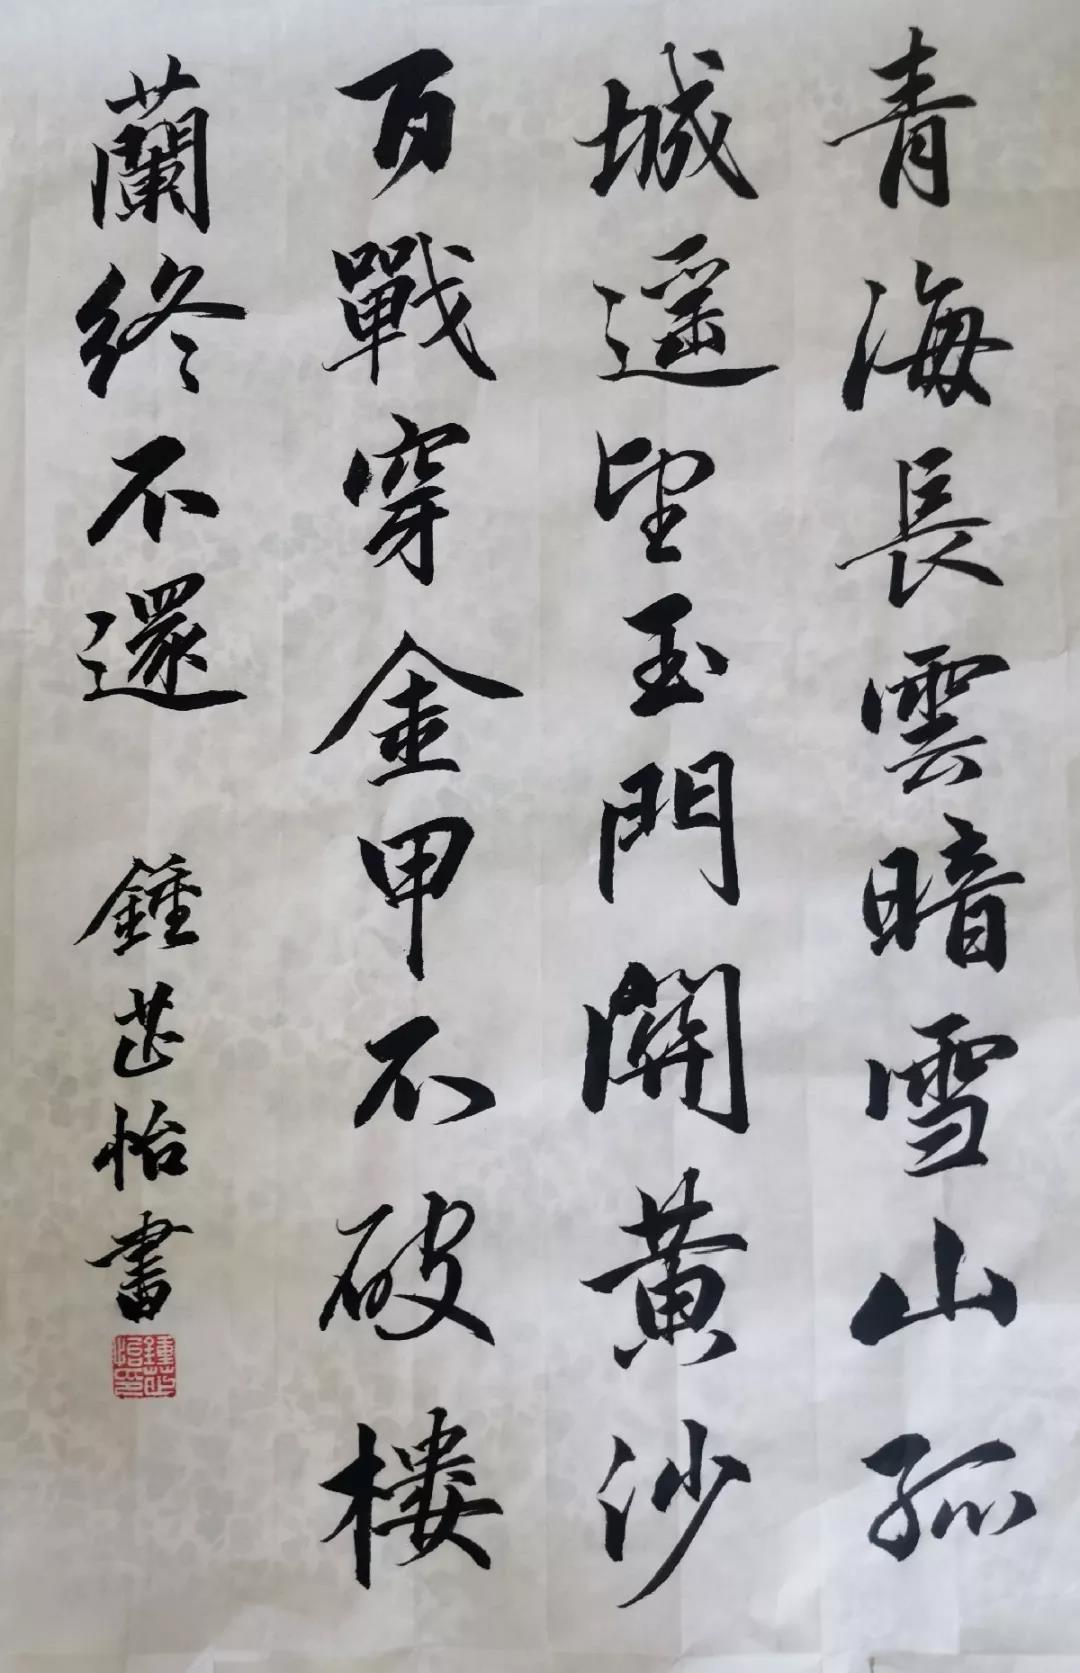 青海長雲暗雪山孤
城遥望玉門關黄沙
百戰穿金甲不破樓
蘭終不還
鍾芷怡書
鍾芷怡印